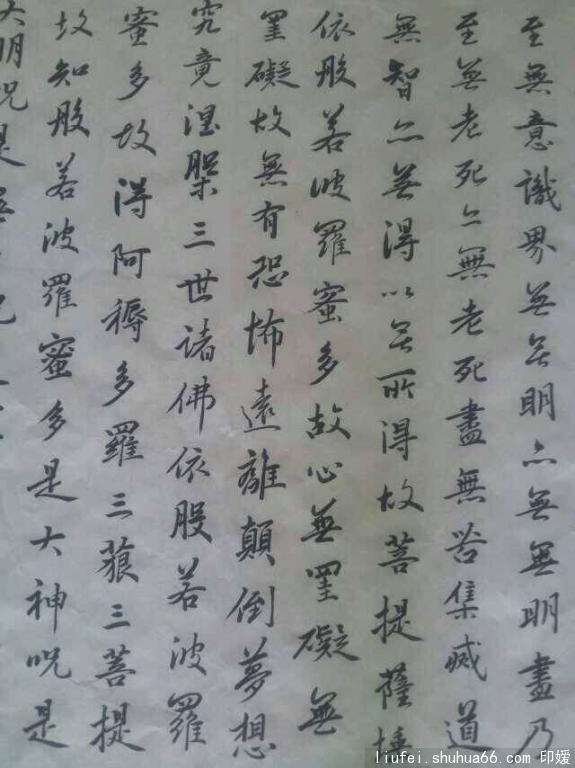 至無意識界無無明亦無無明盡乃
至無老死亦無老死盡無苦集滅道
無智亦無得以無所得故菩提薩埵
依般若波羅蜜多故心無罣礙無
罣礙故無有恐怖遠離顛倒夢想
究竟涅槃三世諸佛依般若波羅
蜜多故得阿耨多羅三藐三菩提
故知般若波羅蜜多是大神呪是
大明呪是
liufei.shuhua66.com 印媛